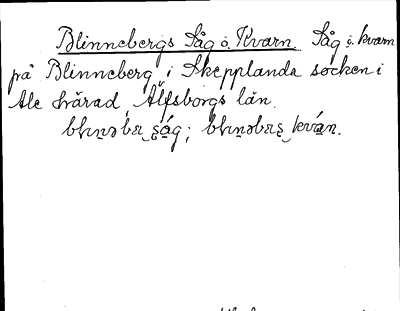 Blinnebergs Såg o. Kvarn. Såg o. kvarn
på Blinneberg i Skepplanda socken i
Ale härad, Älfsborgs län.